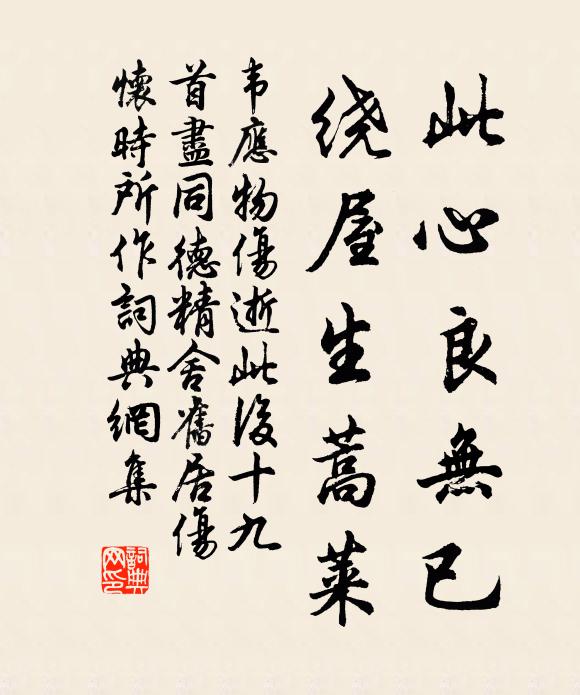 此心良無已
绕屋生蒿莱
韦應物傷逝此後十九
首盡同德精舍舊居傷
懷時所作詞典網集
詞典
网印